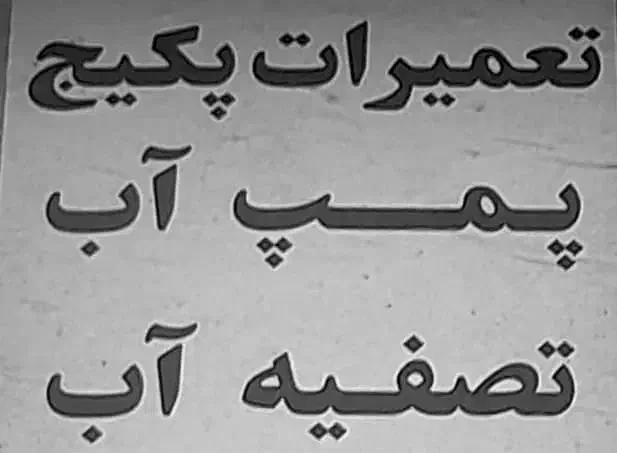 تعمیرات پکیج
پمپ آب
تصفیه آب